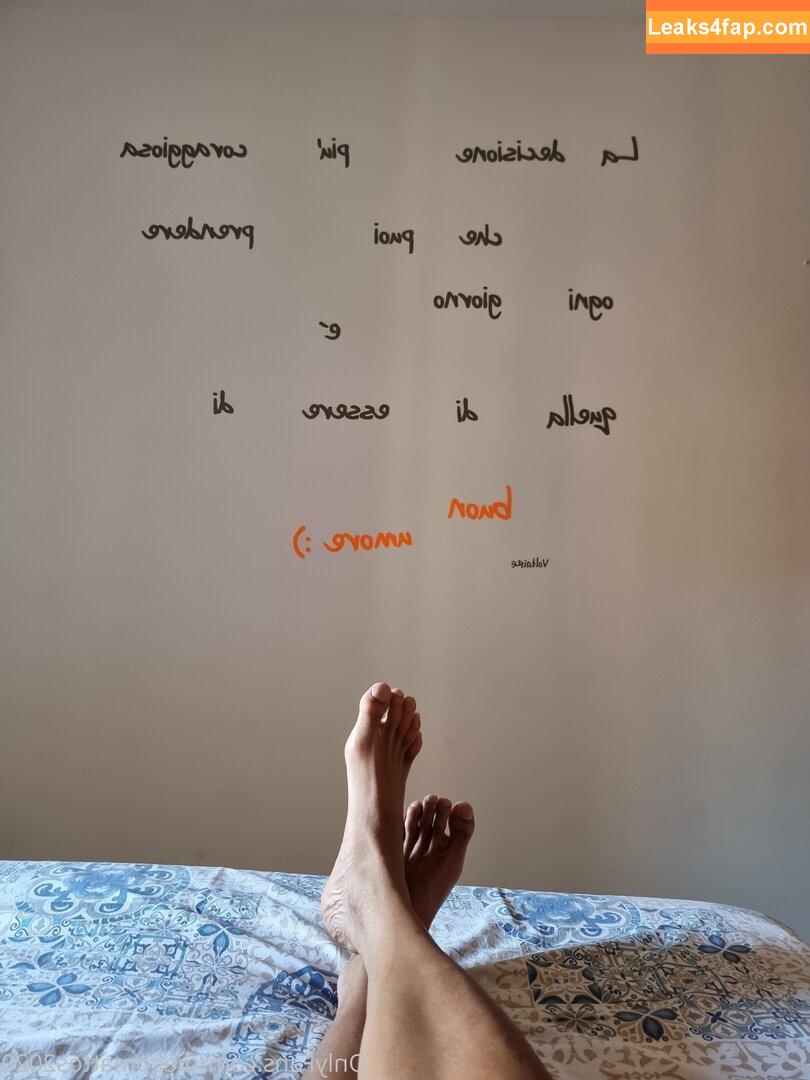 Leaks4fap.com
La decisione piu' coraggiosa
che puoi prendere
ogni giorno
e'
quella di essere di
buon
umore :)
Voltaire